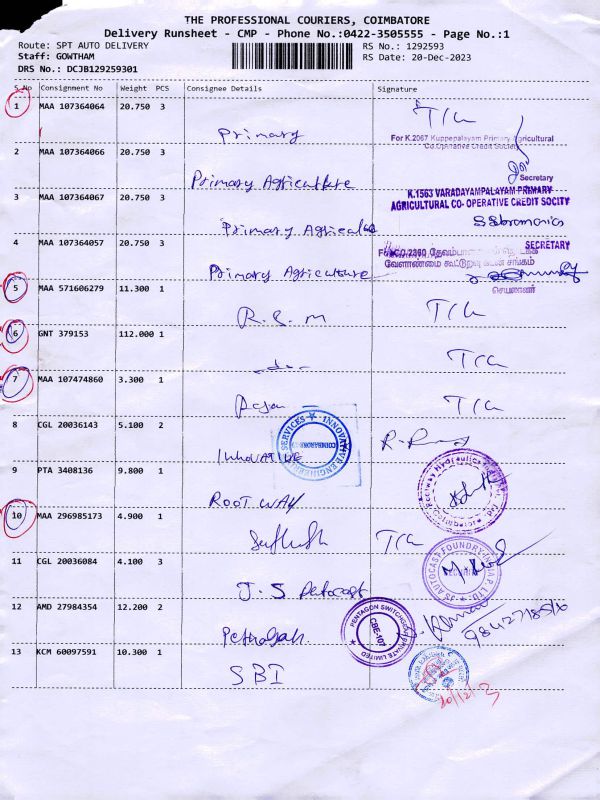 THE PROFESSIONAL COURIERS, COIMBATORE
Delivery Runsheet - CMP - Phone No.:0422-3505555 - Page No.:1
Route: SPT AUTO DELIVERY RS No.: 1292593
Staff: GOWTHAM RS Date: 20-Dec-2023
DRS No.: DCJB129259301
S.No Consignment No Weight PCS Consignee Details Signature
1 MAA 107364064 20.750 3 T/C
Primary For K.2067 Kuppepalayam Primary Agricultural
Co.Operative Credit Society
2 MAA 107364066 20.750 3
Secretary
Primary Agriculture K.1563 VARADAYAMPALAYAM PRIMARY
3 MAA 107364067 20.750 3 AGRICULTURAL CO- OPERATIVE CREDIT SOCITY
Primary
4 MAA 107364057 20.750 3 SECRETARY
Primary Agriculture வேளாண்மை கூட்டுறவு கடன் சங்கம்
செயலாளர்
5 MAA 571606279 11.300 1 T/C
R.S.M
6 GNT 379153 112.000 1 T/C
7 MAA 107474860 3.300 1 T/C
8 CGL 20036143 5.100 2
INNOVATIVE
9 PTA 3408136 9.800 1
ROOT WAY
10 MAA 296985173 4.900 1 T/C
11 CGL 20036084 4.100 3
J.S Autocast
12 AMD 27984354 12.200 2
PENTAGON SWITCHGEAR PRIVATE LIMITED
CBE-107
13 KCM 60097591 10.300 1
SBI